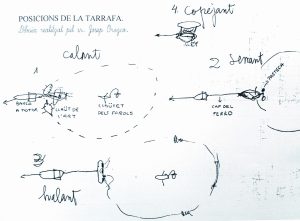 POSICIONS DE LA TARRAFA.
Dibuix realitzat pel sr. Josep
4. Copejant
calant
ART
2 Serrant
1
BARCA
A MOTOR
LLAÜT DE
L'ART
LLAÜT
DELS FAROLS
CAP DEL
FERRO
3
halant